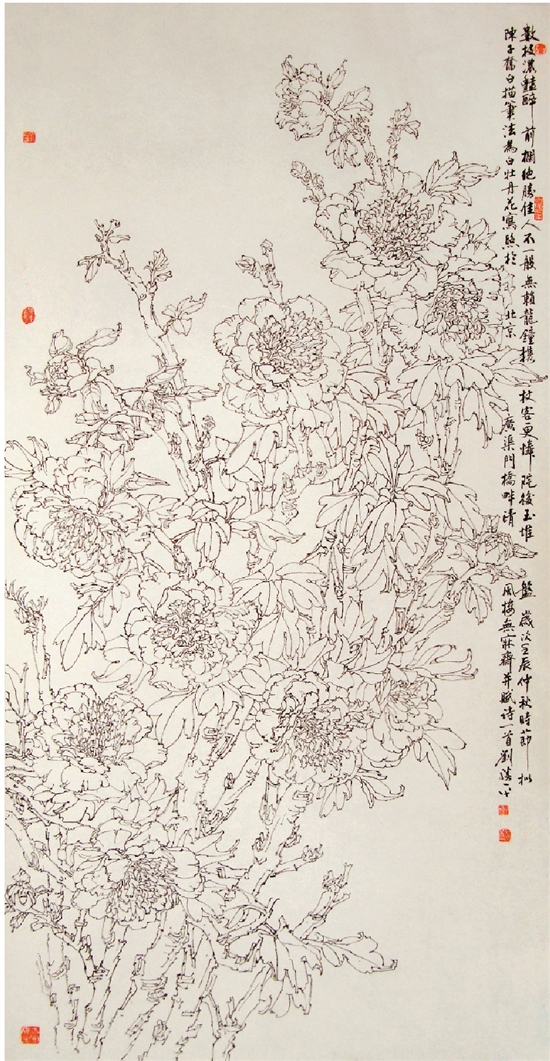 數枝濃豔醉前欄絶勝佳人不般無賴龍鐘攜杖客更憐院後玉堆盤歲次壬辰仲秋時節拟
陳子舊白描筆法為白牡丹花寫照於北京廣渠門橋畔清風接無寐齋并賦詩一首劉